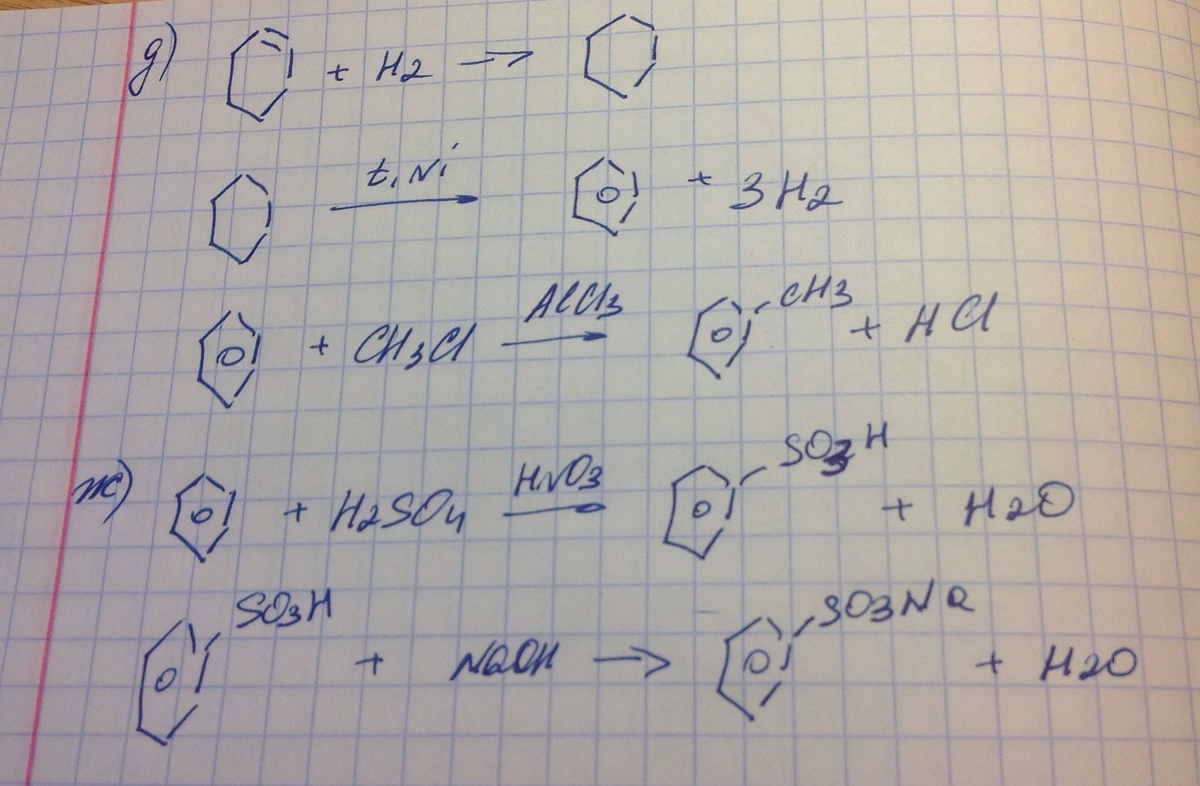 д) + H2 →
t, Ni + 3H2
+ CH3Cl AlCl3 → CH3 + HCl
ж) + H2SO4 HNO3 → SO3H + H2O
SO3H + NaOH → SO3Na + H2O